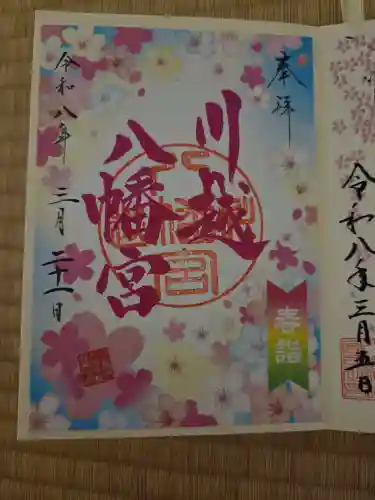 奉拝
川越
八幡宮
令和八年
三月
二十一日
春詣
令和八年三月五日